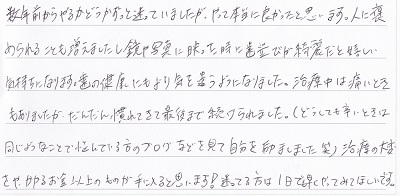 数年前からやるかどうかずっと迷っていましたが、やって本当に良かったと思います。人に褒
められることも増えましたし鏡や写真に映った時に歯並びが綺麗だと嬉しい
気持ちになります。歯の健康にもより気を遣うようになりました。治療中は痛いとき
もありましたが、だんだん慣れてきて最後まで続けられました。(どうしても辛いときは
同じようなことで悩んでいる方のブログなどを見て自分を励ましました笑)治療の大変
さやかかるお金以上のものが手に入ると思います!迷ってる方は1日でも早くやってみてほしいです